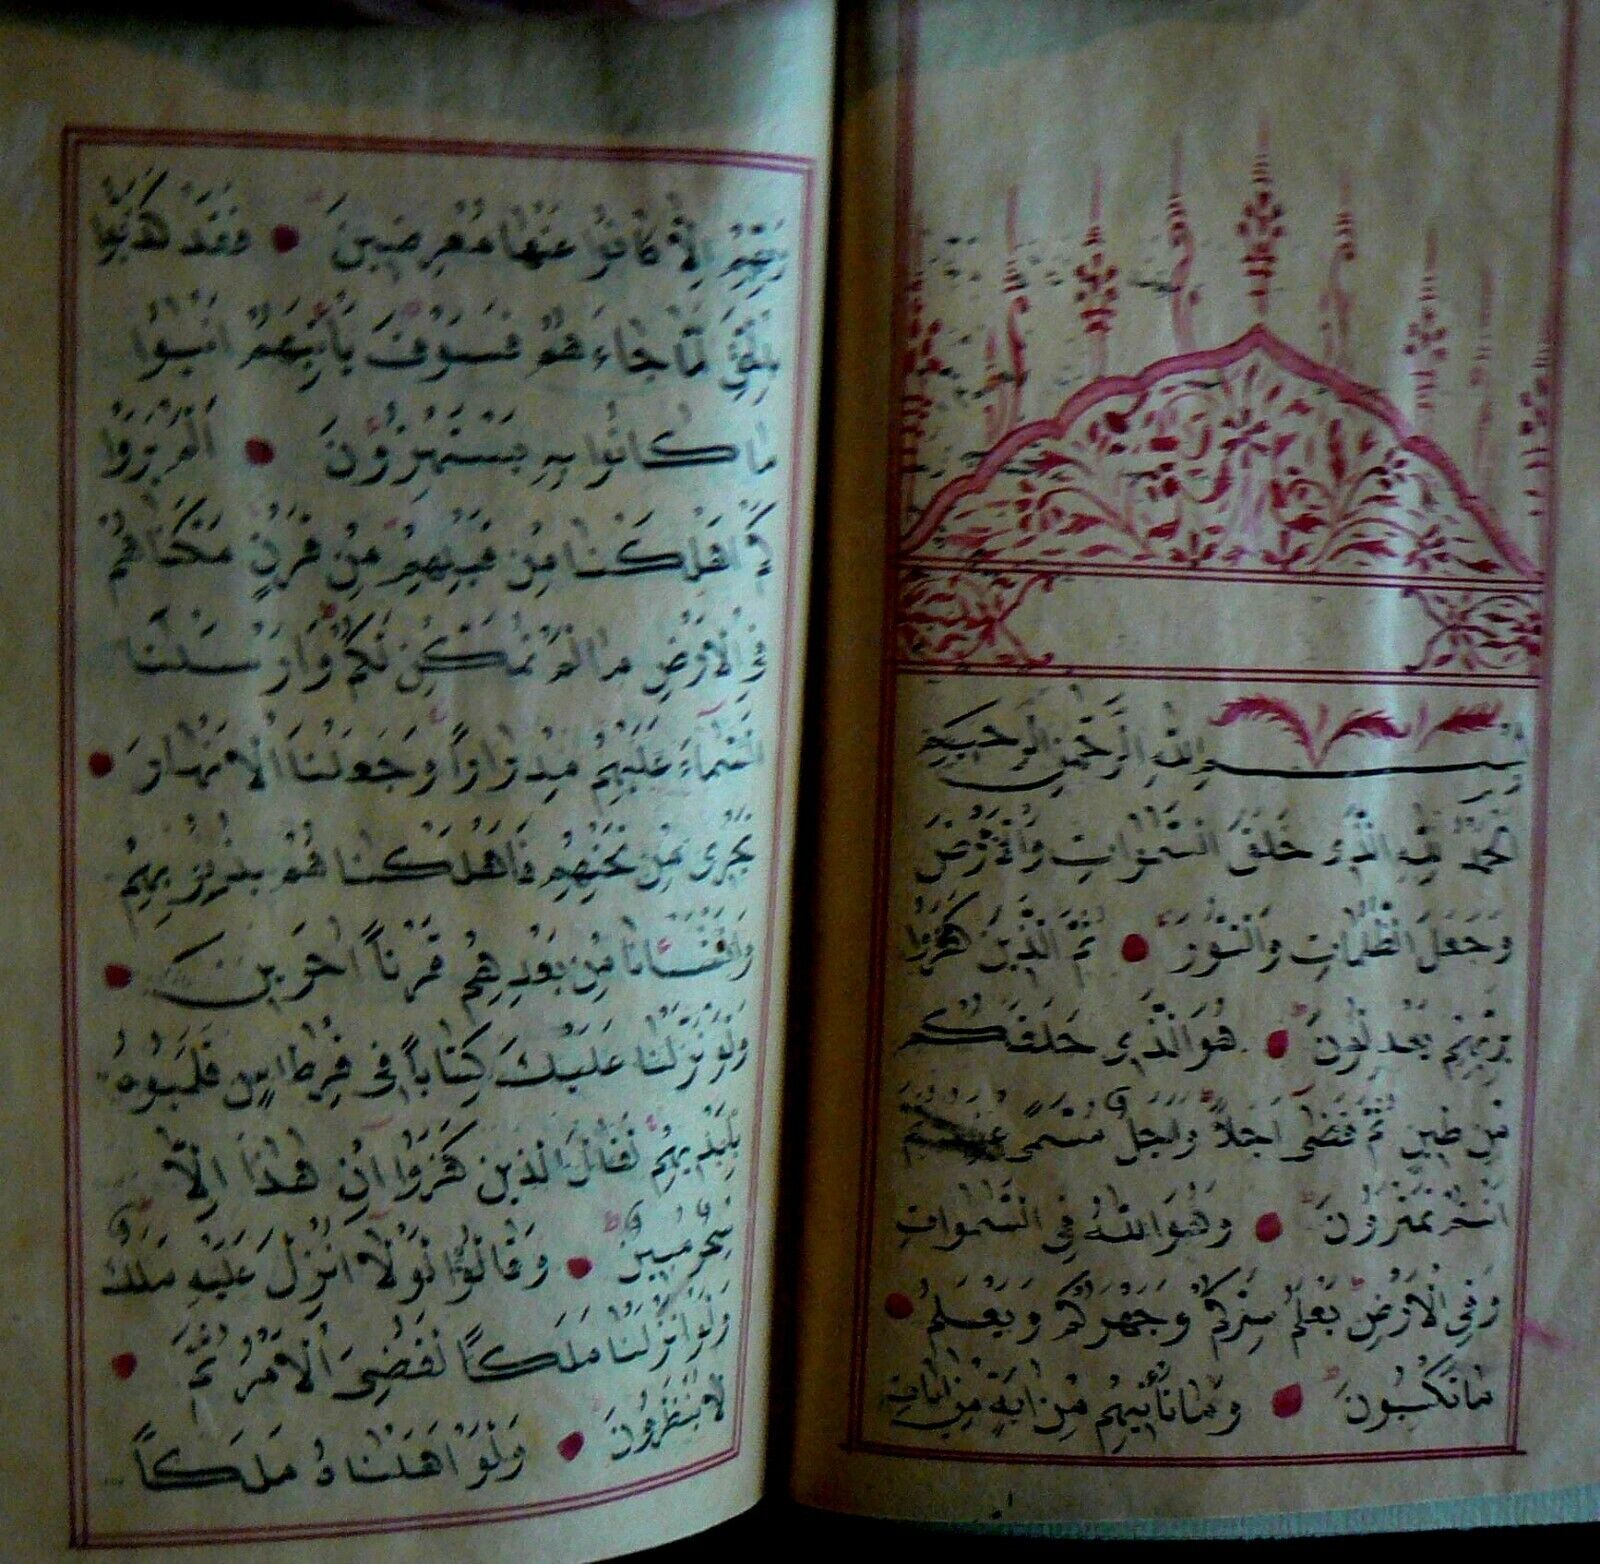 بِسْمِ اللهِ الرَّحْمٰنِ الرَّحِيمِ
اَلْحَمْدُ لِلّٰهِ الَّذِى خَلَقَ السَّمٰوَاتِ وَالْاَرْضَ
وَجَعَلَ الظُّلُمَاتِ وَالنُّورَ ثُمَّ الَّذِينَ كَفَرُوا
بِرَبِّهِمْ يَعْدِلُونَ هُوَ الَّذِى خَلَقَكُمْ
مِنْ طِينٍ ثُمَّ قَضٰى اَجَلاً وَاَجَلٌ مُسَمًّى عِنْدَهُ ثُمَّ
اَنْتُمْ تَمْتَرُونَ وَهُوَ اللهُ فِى السَّمٰوَاتِ
وَفِى الْاَرْضِ يَعْلَمُ سِرَّكُمْ وَجَهْرَكُمْ وَيَعْلَمُ
مَا تَكْسِبُونَ وَمَا تَأْتِيهِمْ مِنْ اٰيَةٍ مِنْ اٰيَاتِ
رَبِّهِمْ اِلَّا كَانُوا عَنْهَا مُعْرِضِينَ فَقَدْ كَذَّبُوا
بِالْحَقِّ لَمَّا جَاءَهُمْ فَسَوْفَ يَأْتِيهِمْ اَنْبٰؤُا
مَا كَانُوا بِهِ يَسْتَهْزِؤُنَ اَلَمْ يَرَوْا
كَمْ اَهْلَكْنَا مِنْ قَبْلِهِمْ مِنْ قَرْنٍ مَكَّنَّاهُمْ
فِى الْاَرْضِ مَا لَمْ نُمَكِّنْ لَكُمْ وَاَرْسَلْنَا
السَّمَاءَ عَلَيْهِمْ مِدْرَاراً وَجَعَلْنَا الْاَنْهَارَ
تَجْرِى مِنْ تَحْتِهِمْ فَاَهْلَكْنَاهُمْ بِذُنُوبِهِمْ
وَاَنْشَأْنَا مِنْ بَعْدِهِمْ قَرْناً اٰخَرِينَ
وَلَوْ نَزَّلْنَا عَلَيْكَ كِتَاباً فِى قِرْطَاسٍ فَلَمَسُوهُ
بِاَيْدِيهِمْ لَقَالَ الَّذِينَ كَفَرُوا اِنْ هٰذَا اِلَّا
سِحْرٌ مُبِينٌ وَقَالُوا لَوْلَا اُنْزِلَ عَلَيْهِ مَلَكٌ
وَلَوْ اَنْزَلْنَا مَلَكاً لَقُضِىَ الْاَمْرُ ثُمَّ
لَا يُنْظَرُونَ وَلَوْ جَعَلْنَاهُ مَلَكاً